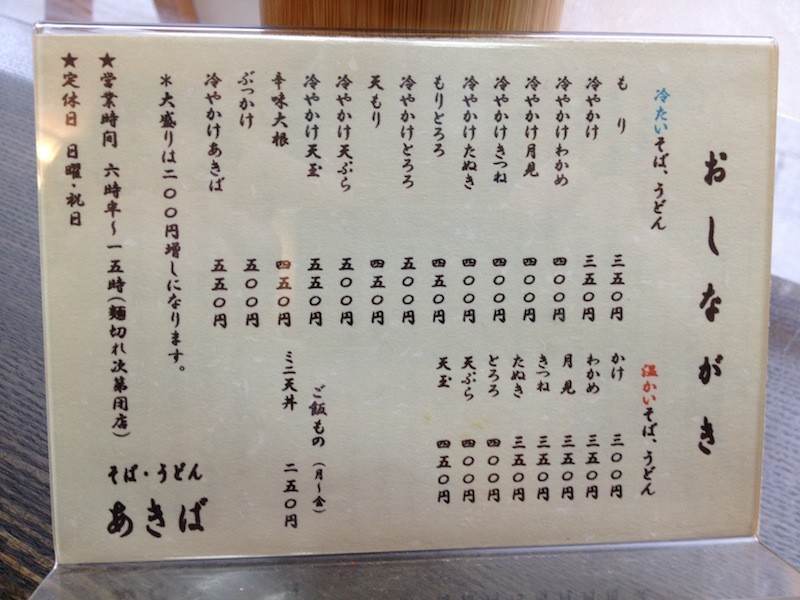 おしながき
冷たいそば、うどん
も り 三五〇円
冷やかけ 三五〇円
冷やかけわかめ 四〇〇円
冷やかけ月見 四〇〇円
冷やかけきつね 四〇〇円
冷やかけたぬき 四〇〇円
もりとろろ 四五〇円
冷やかけとろろ 五〇〇円
天もり 四五〇円
冷やかけ天ぷら 五〇〇円
冷やかけ天玉 五五〇円
辛味大根 四五〇円
ぶっかけ 五〇〇円
冷やかけあきば 五五〇円
温かいそば、うどん
かけ 三〇〇円
わかめ 三五〇円
月見 三五〇円
きつね 三五〇円
たぬき 三五〇円
とろろ 四〇〇円
天ぷら 四〇〇円
天玉 四五〇円
ご飯もの(月～金)
ミニ天丼 二五〇円
＊大盛りは二〇〇円増しになります。
★営業時間 六時半～一五時(麺切れ次第閉店)
★定休日 日曜・祝日
そば・うどん
あきば